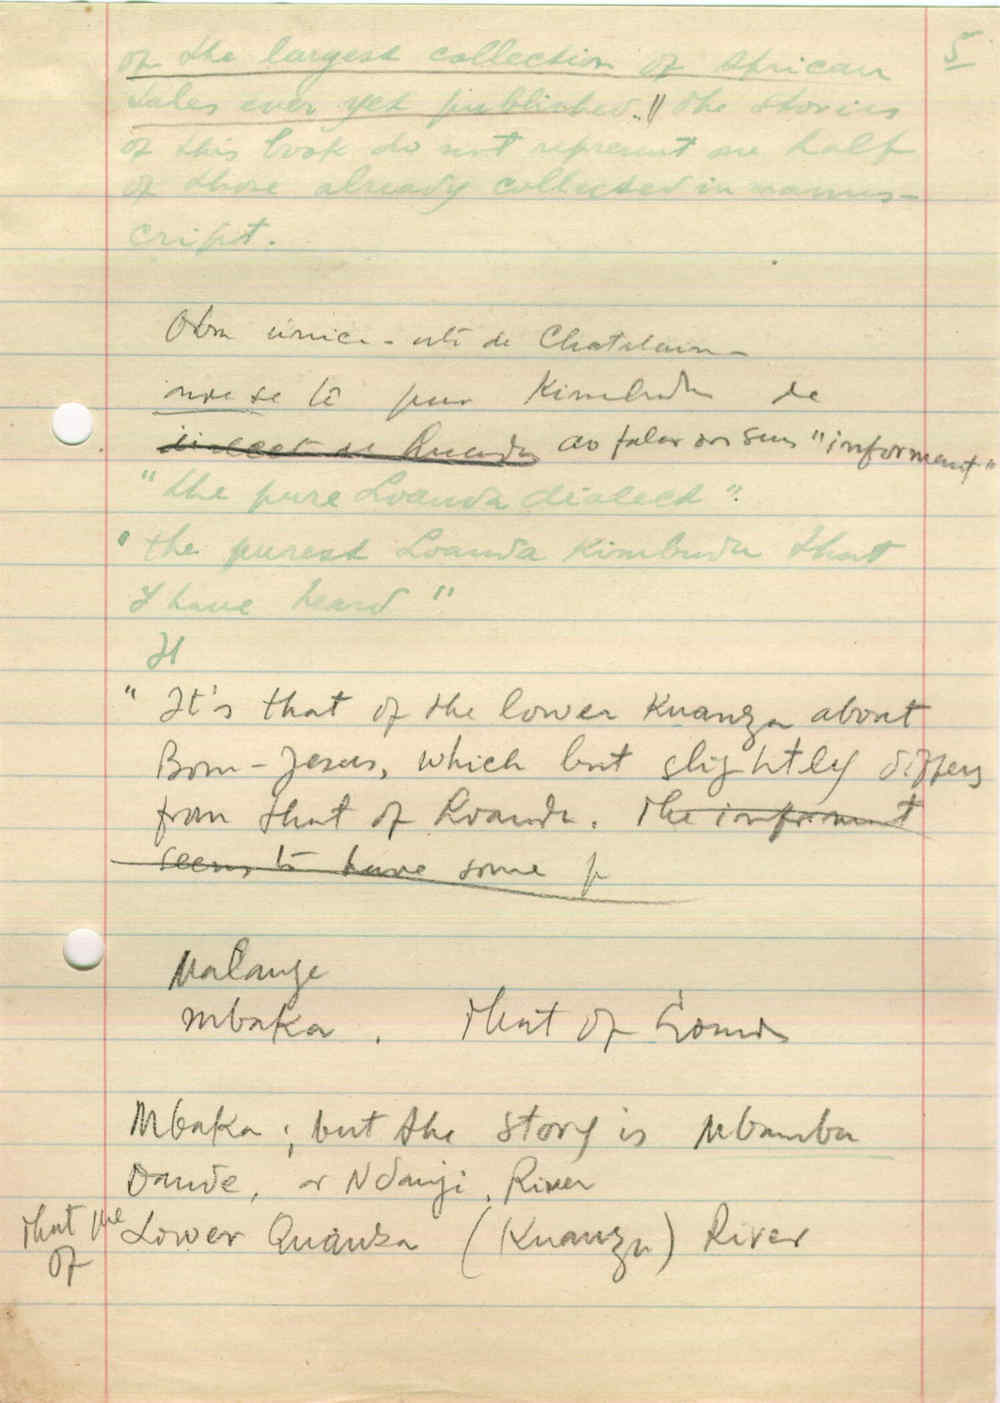 5
of the largest collection of African
tales ever yet published." The stories
of this book do not represent one half
of those already collected in manus-
cript.
Obra única - de Chatelain -
onde se lê puro Kimbundu de
dialect de Luanda ao falar dos seus "informant"
"the pure Loanda dialect".
"the purest Loanda Kimbundu that
I have heard"
It
" It's that of the lower Kuanza about
Bom-Jesus, which but slightly differs
from that of Loanda. The informant
seems to have some p
Malange
Mbaka. that of
Mbaka; but the story is Mbamba
Dande, or Ndanji, River
that of the Lower Quanza (Kuanza) River